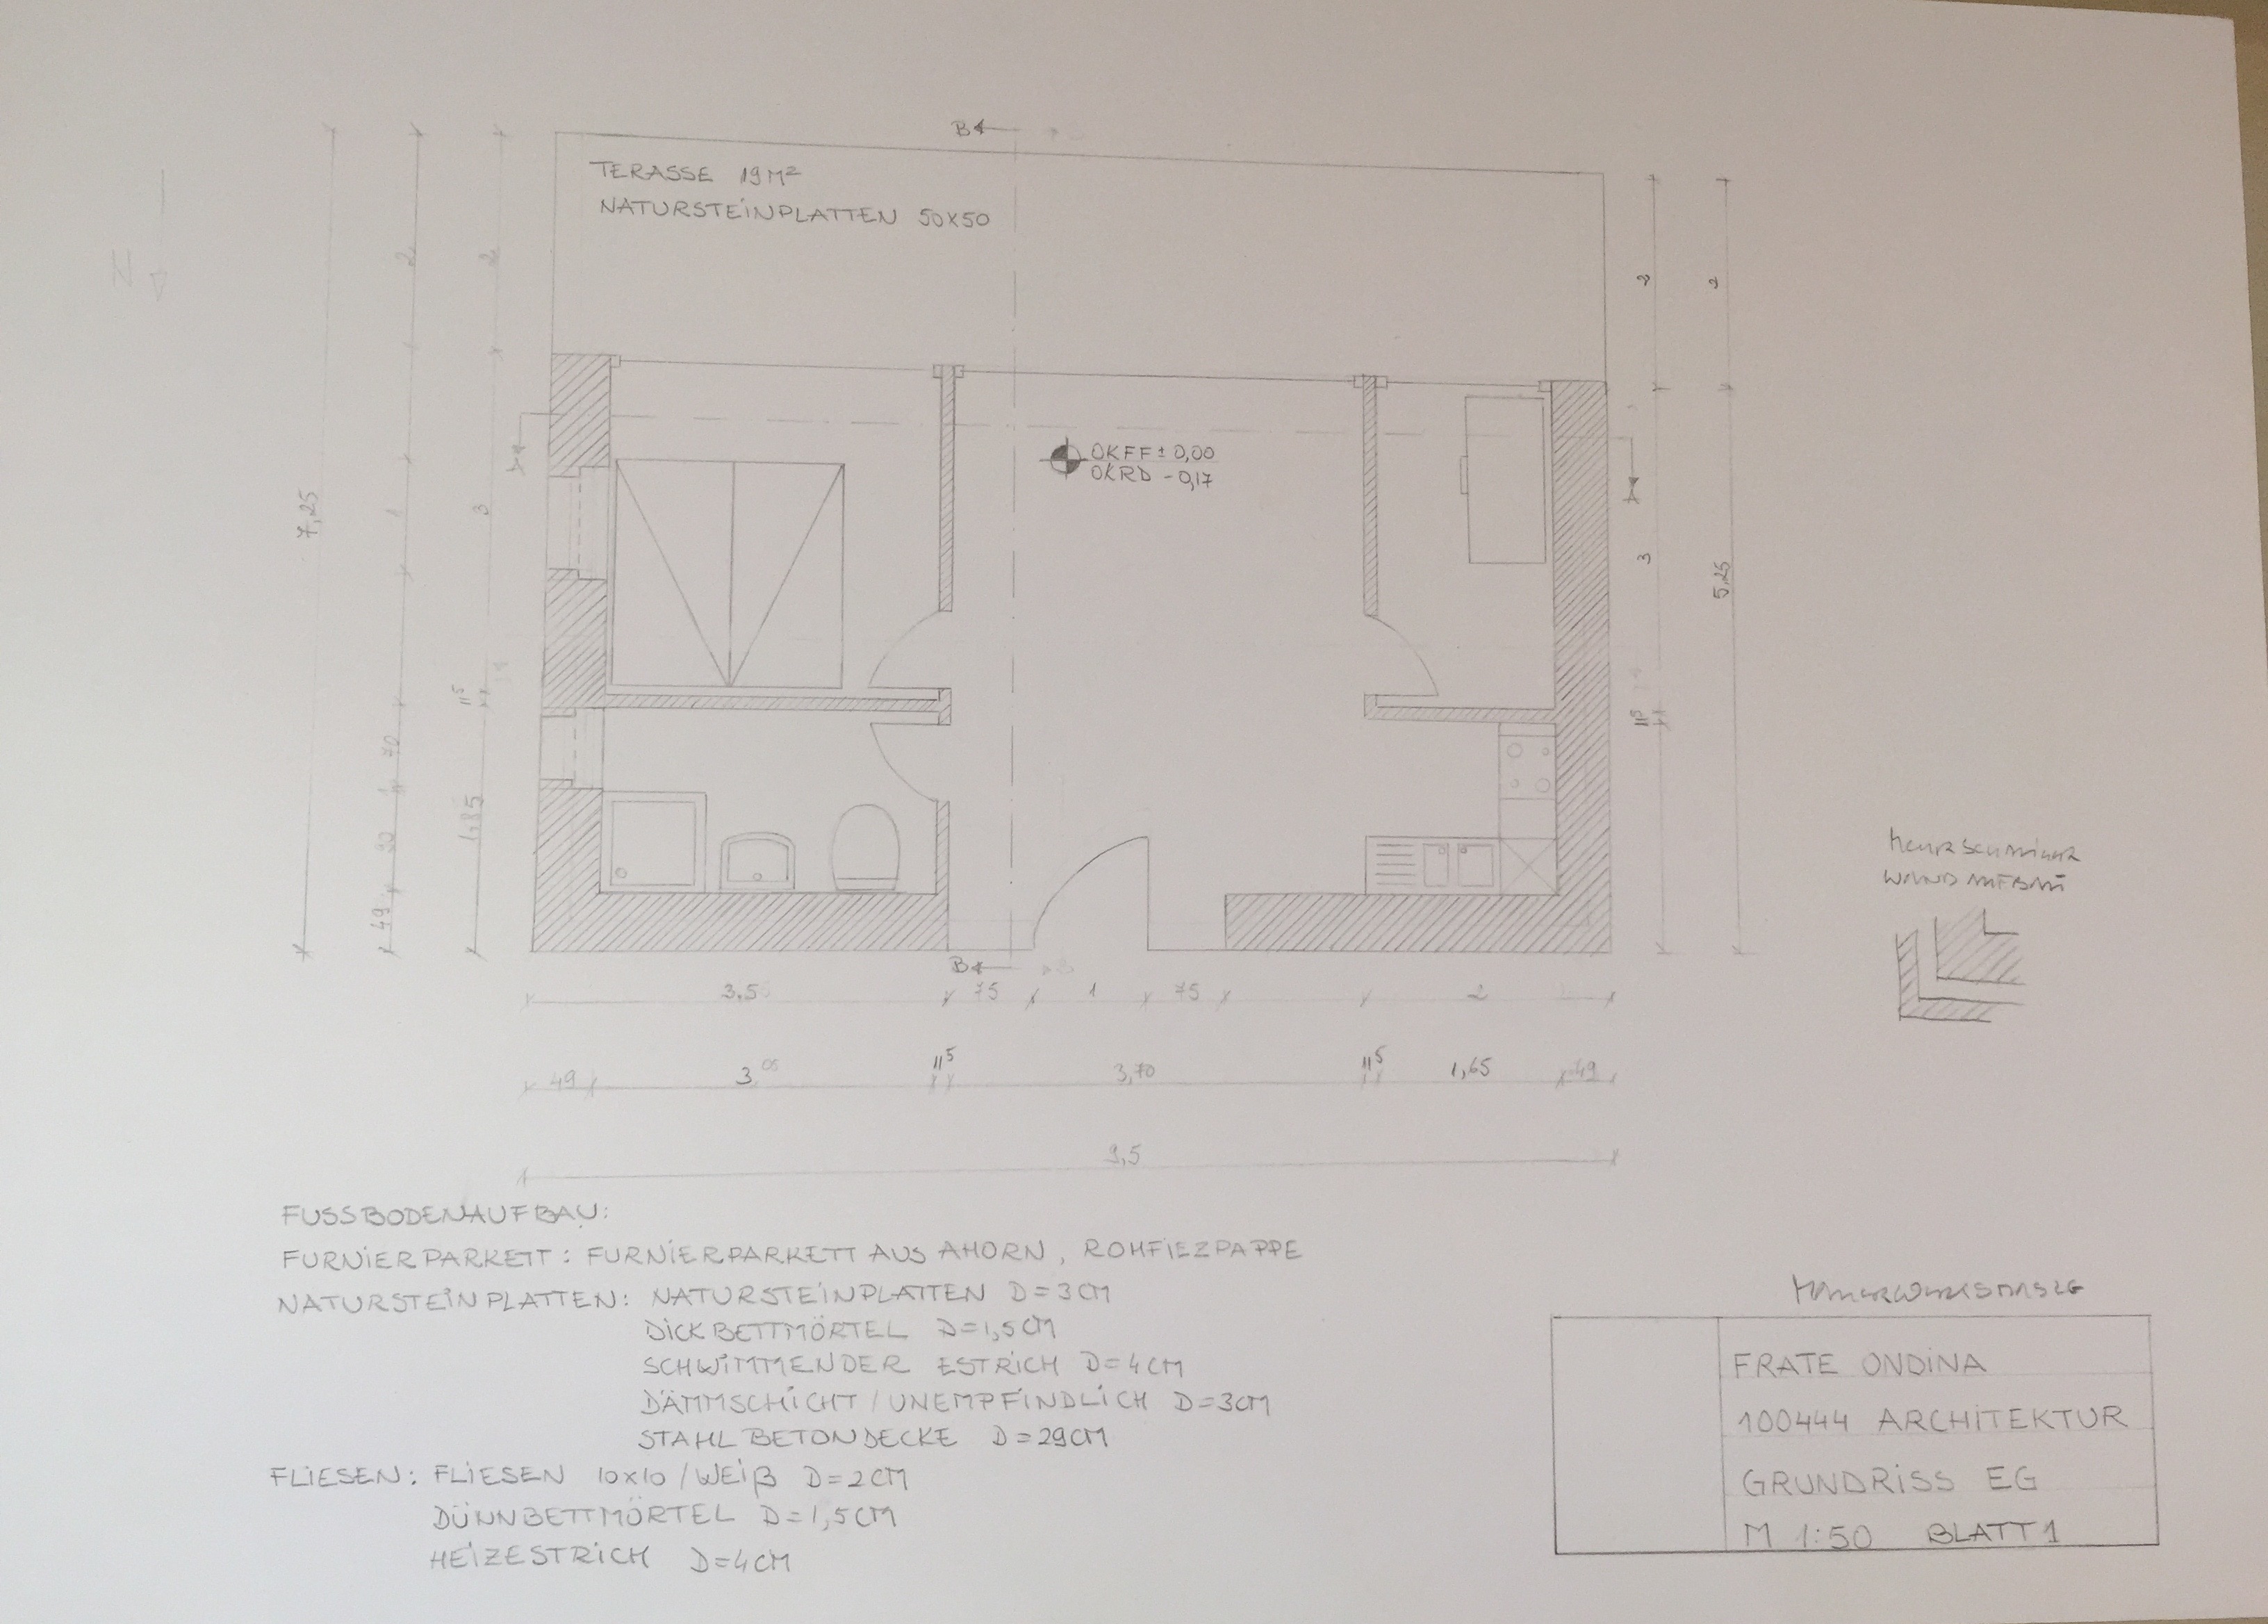 B
TERASSE 19M²
NATURSTEINPLATTEN 50X50
N
2
2
2
2
OKFF ± 0,00
OKRD - 0,17
7,25
1
3
3
5,25
11⁵
11⁵
70
90
1,85
49
B
3,5
75
1
75
2
49
3,05
11⁵
3,70
11⁵
1,65
49
9,5
WANDAUFBAU
FUSSBODENAUFBAU:
FURNIERPARKETT: FURNIERPARKETT AUS AHORN, ROHFIEZPAPPE
NATURSTEINPLATTEN: NATURSTEINPLATTEN D=3CM
DICKBETTMÖRTEL D=1,5CM
SCHWIMMENDER ESTRICH D=4CM
DÄMMSCHICHT/UNEMPFINDLICH D=3CM
STAHLBETONDECKE D=29CM
FLIESEN: FLIESEN 10x10/WEIß D=2CM
DÜNNBETTMÖRTEL D=1,5CM
HEIZESTRICH D=4CM
FRATE ONDINA
100444 ARCHITEKTUR
GRUNDRISS EG
M 1:50 BLATT 1